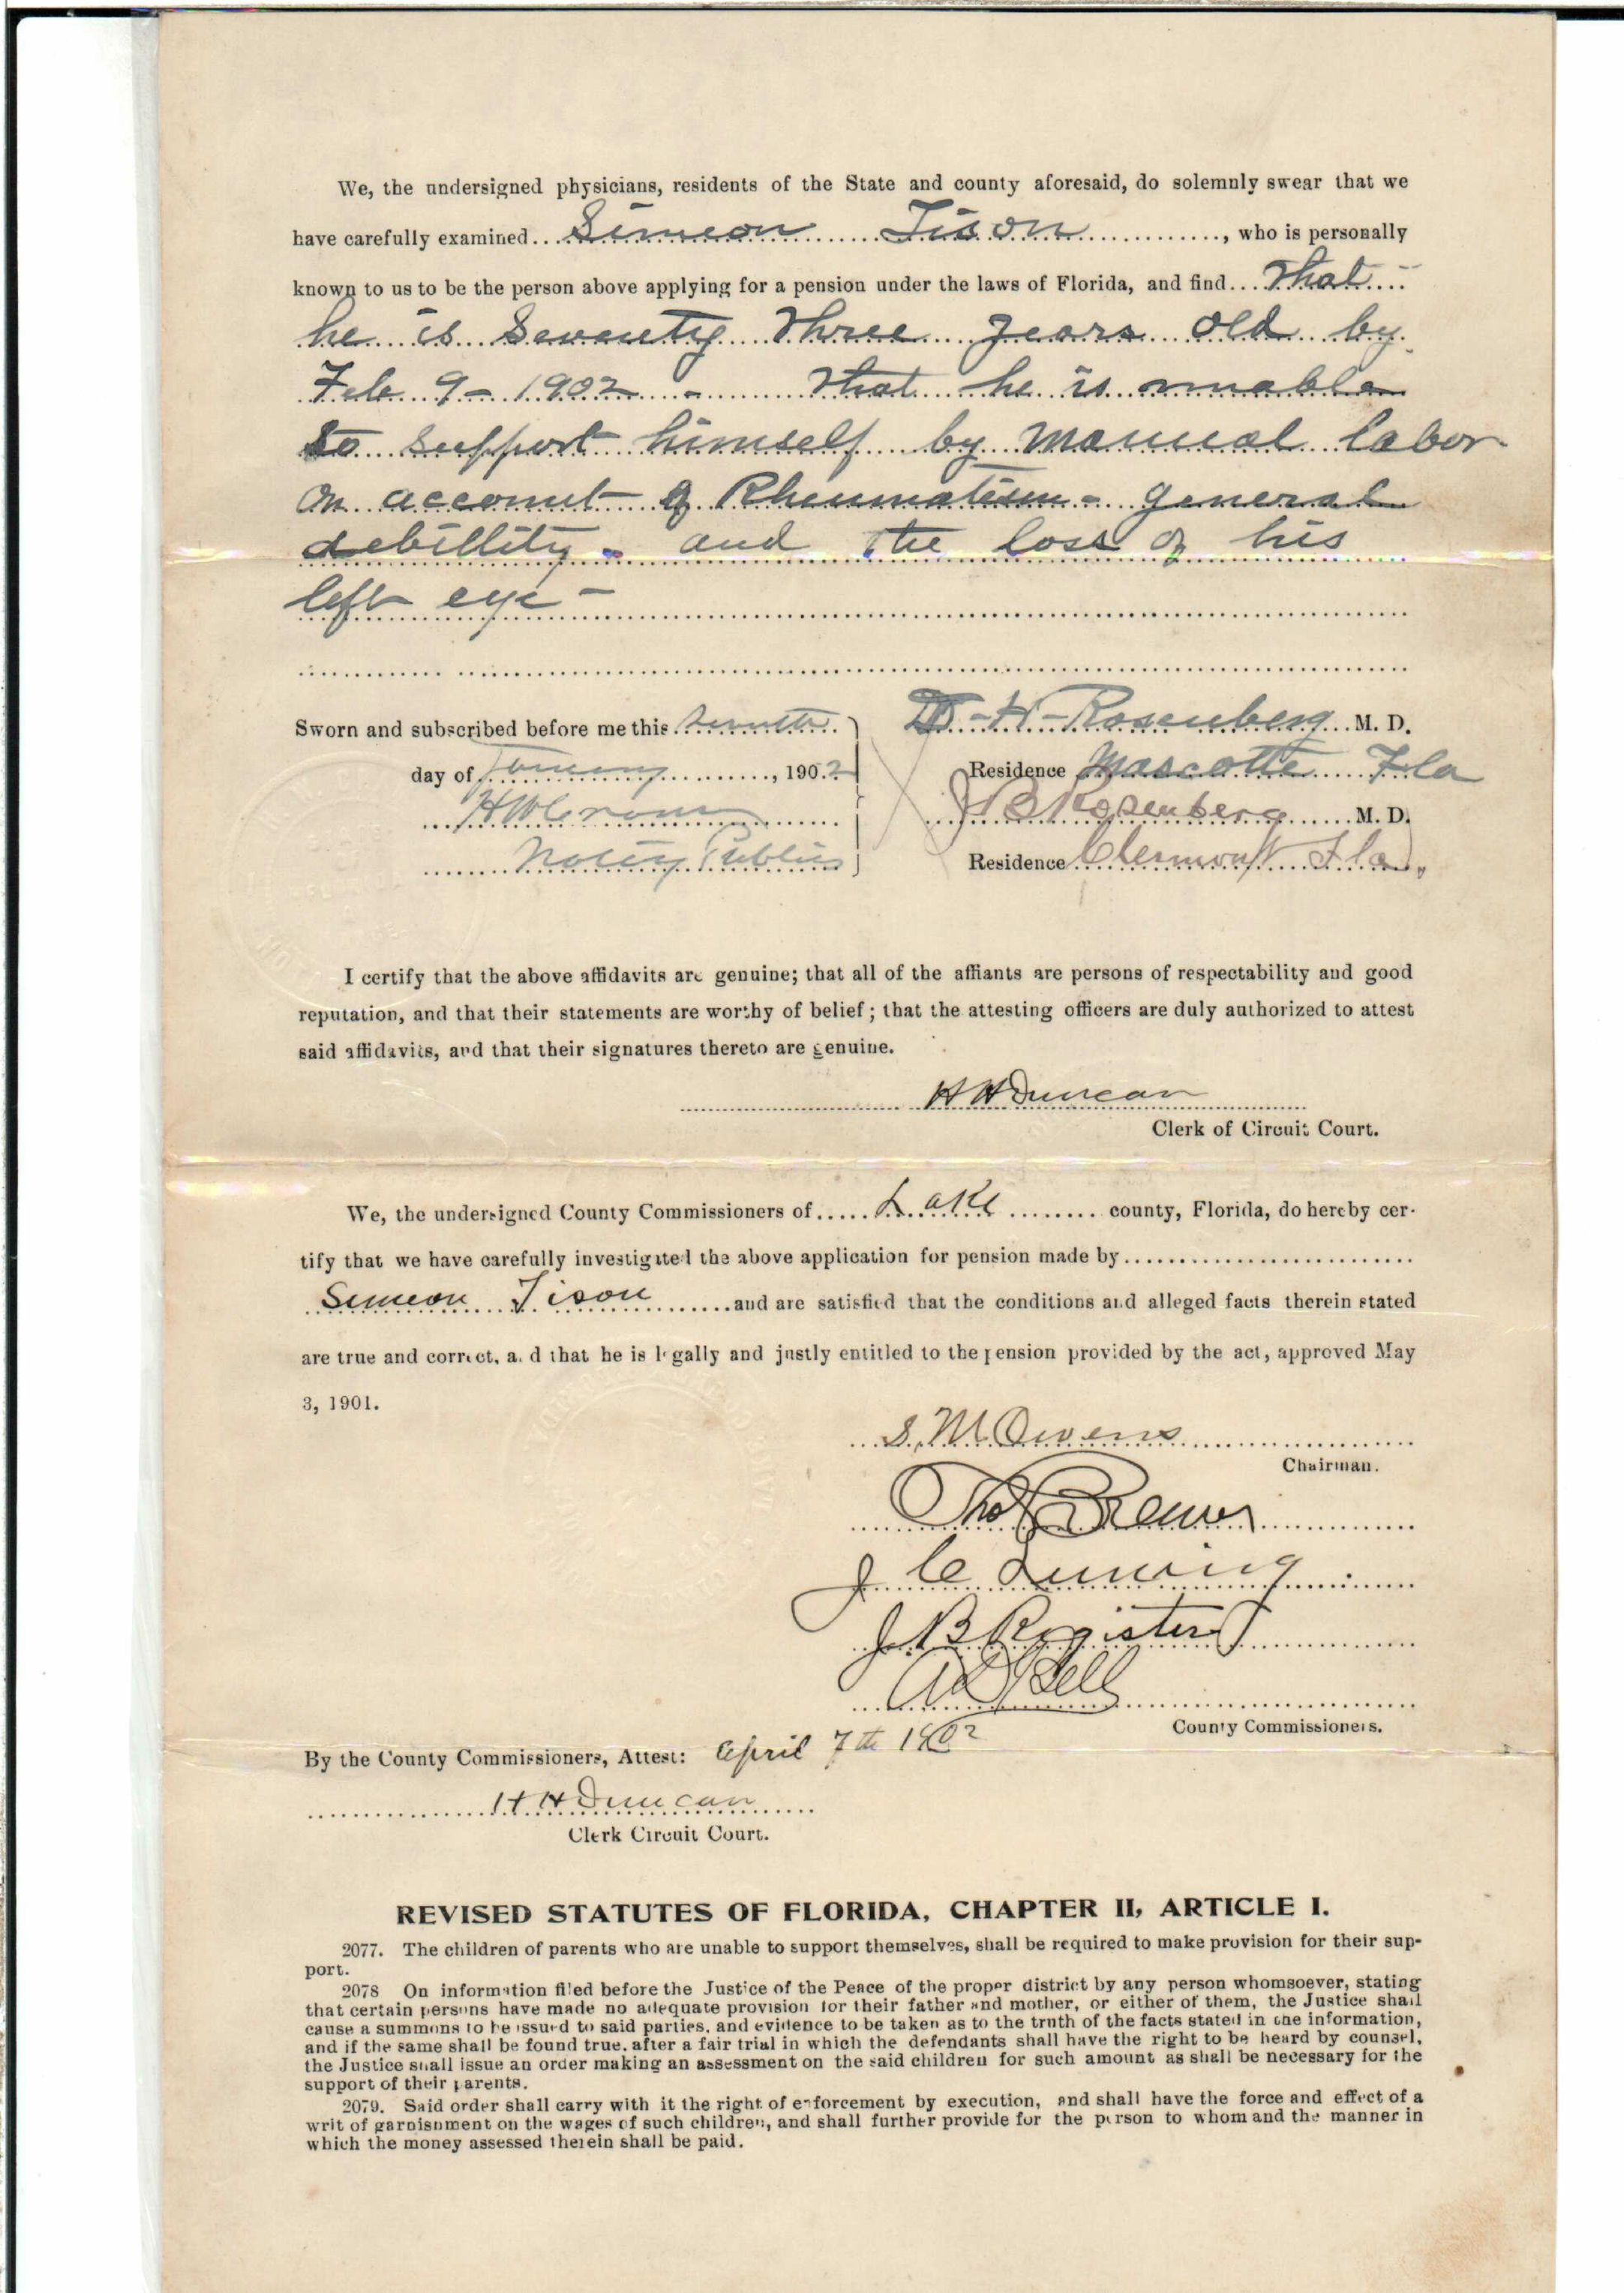 We, the undersigned physicians, residents of the State and county aforesaid, do solemnly swear that we
have carefully examined Simeon Tison, who is personally
known to us to be the person above applying for a pension under the laws of Florida, and find that
he is Seventy three years old by
Feb 9 - 1902 - that he is unable
to support himself by manual labor
on account of Rheumatism - general
debillity - and the loss of his
left eye -
Sworn and subscribed before me this
day of, 1902
Notary Public
H - Rosenberg M. D.
Residence Mascotte Fla
J B Rosenberg M. D.
Residence Clermont Fla.
I certify that the above affidavits are genuine; that all of the affiants are persons of respectability and good
reputation, and that their statements are worthy of belief; that the attesting officers are duly authorized to attest
said affidavits, and that their signatures thereto are genuine.
H H Duncan
Clerk of Circuit Court.
We, the undersigned County Commissioners of Lake county, Florida, do hereby cer-
tify that we have carefully investigated the above application for pension made by
Simeon Tison and are satisfied that the conditions and alleged facts therein stated
are true and correct, and that he is legally and justly entitled to the pension provided by the act, approved May
3, 1901.
S. M. Owens
Chairman.
Thos Brewer
J C Luning
J B Register
A D Bell
County Commissioners.
By the County Commissioners, Attest: April 7th 1902
H H Duncan
Clerk Circuit Court.
REVISED STATUTES OF FLORIDA, CHAPTER II, ARTICLE I.
2077. The children of parents who are unable to support themselves, shall be required to make provision for their sup-
port.
2078 On information filed before the Justice of the Peace of the proper district by any person whomsoever, stating
that certain persons have made no adequate provision for their father and mother, or either of them, the Justice shall
cause a summons to be issued to said parties, and evidence to be taken as to the truth of the facts stated in the information,
and if the same shall be found true, after a fair trial in which the defendants shall have the right to be heard by counsel,
the Justice shall issue an order making an assessment on the said children for such amount as shall be necessary for the
support of their parents.
2079. Said order shall carry with it the right of enforcement by execution, and shall have the force and effect of a
writ of garnishment on the wages of such children, and shall further provide for the person to whom and the manner in
which the money assessed therein shall be paid.